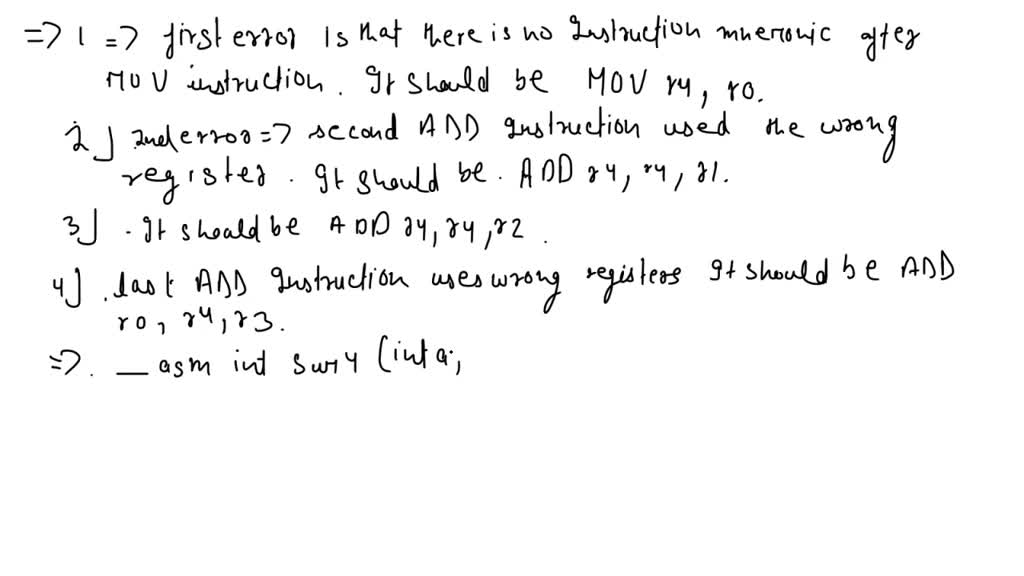 => 1 => first error is that there is no Instruction mnemonic after
MOV instruction. It should be MOV r4, r0.
2] 2nd error => second ADD Instruction used the wrong
register. It should be. ADD r4, r4, r1.
3] . It should be ADD r4, r4, r2 .
4] . last ADD Instruction uses wrong registers It should be ADD
r0, r4, r3.
=> . __ asm int sum4 (int a,